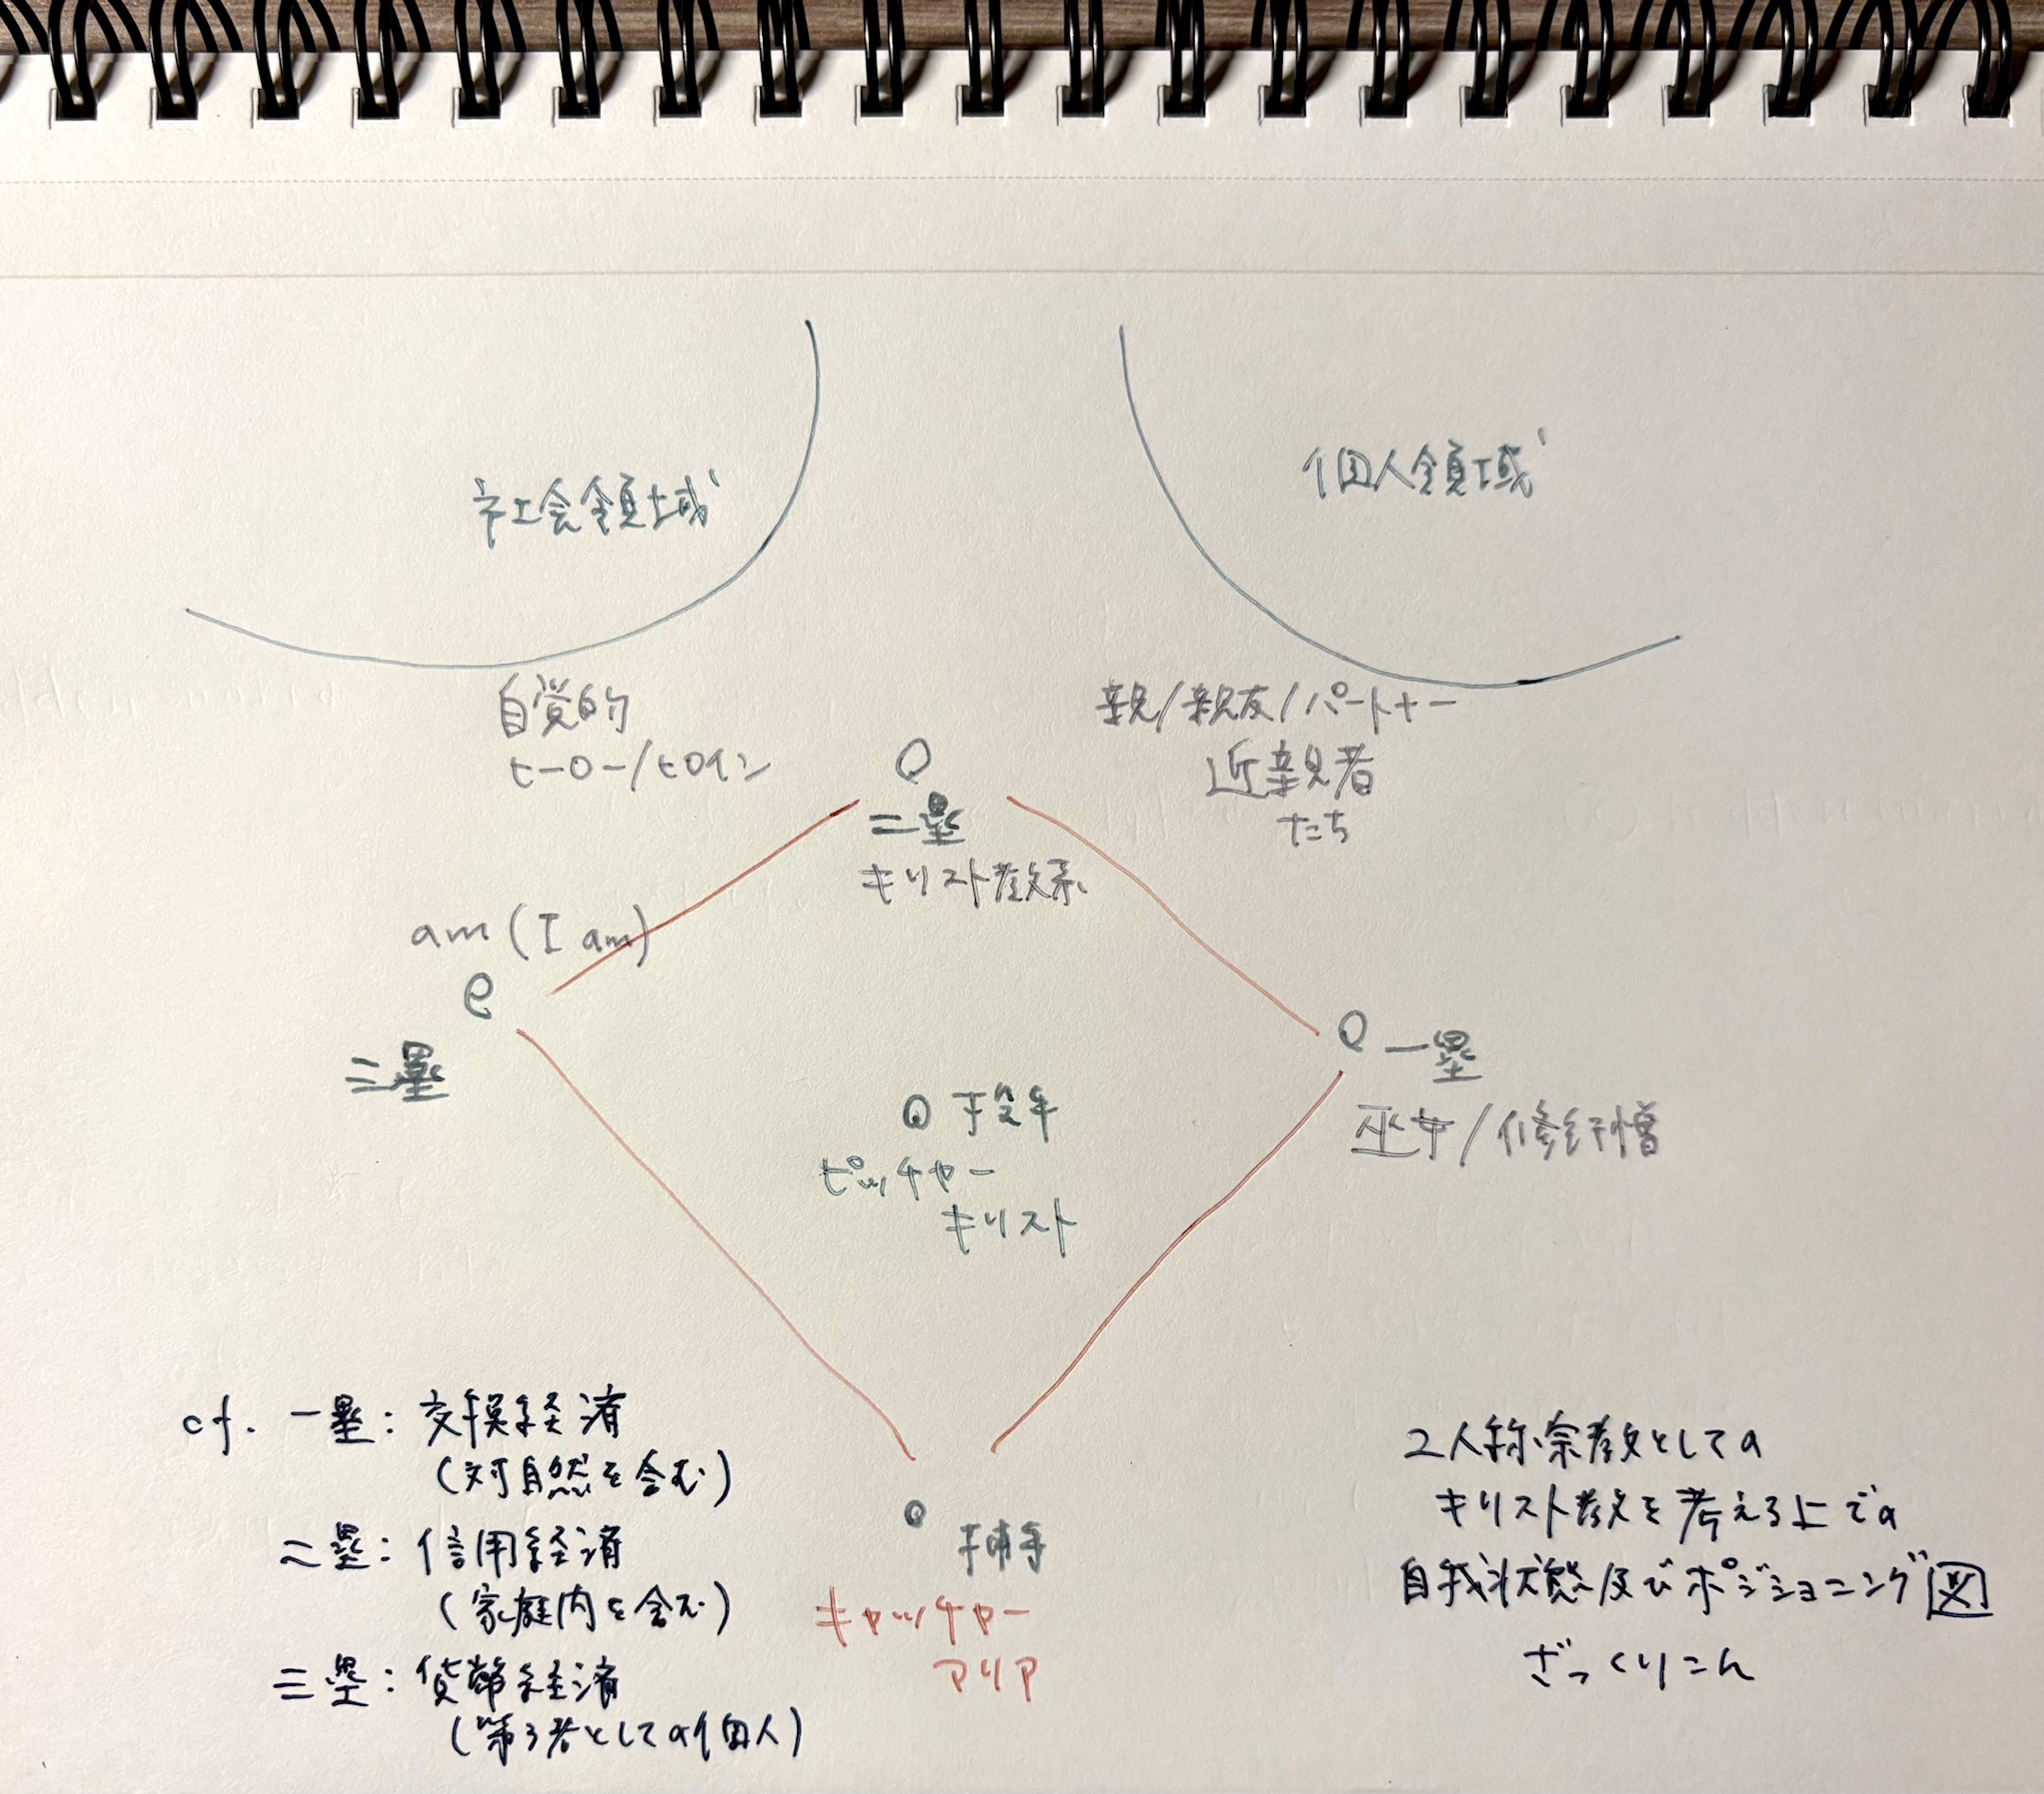 社会領域
個人領域
自覚的
ヒーロー/ヒロイン
親/親友/パートナー
近親者
たち
二塁
キリスト教系
am (I am)
三塁
一塁
巫女/修行僧
投手
ピッチャー
キリスト
捕手
キャッチャー
マリア
cf. 一塁: 交換経済
(対自然を含む)
二塁: 信用経済
(家庭内を含む)
三塁: 貨幣経済
(第3者としての個人)
2人称宗教としての
キリスト教を考える上での
自我状態及びポジショニング図
ざっくりこん